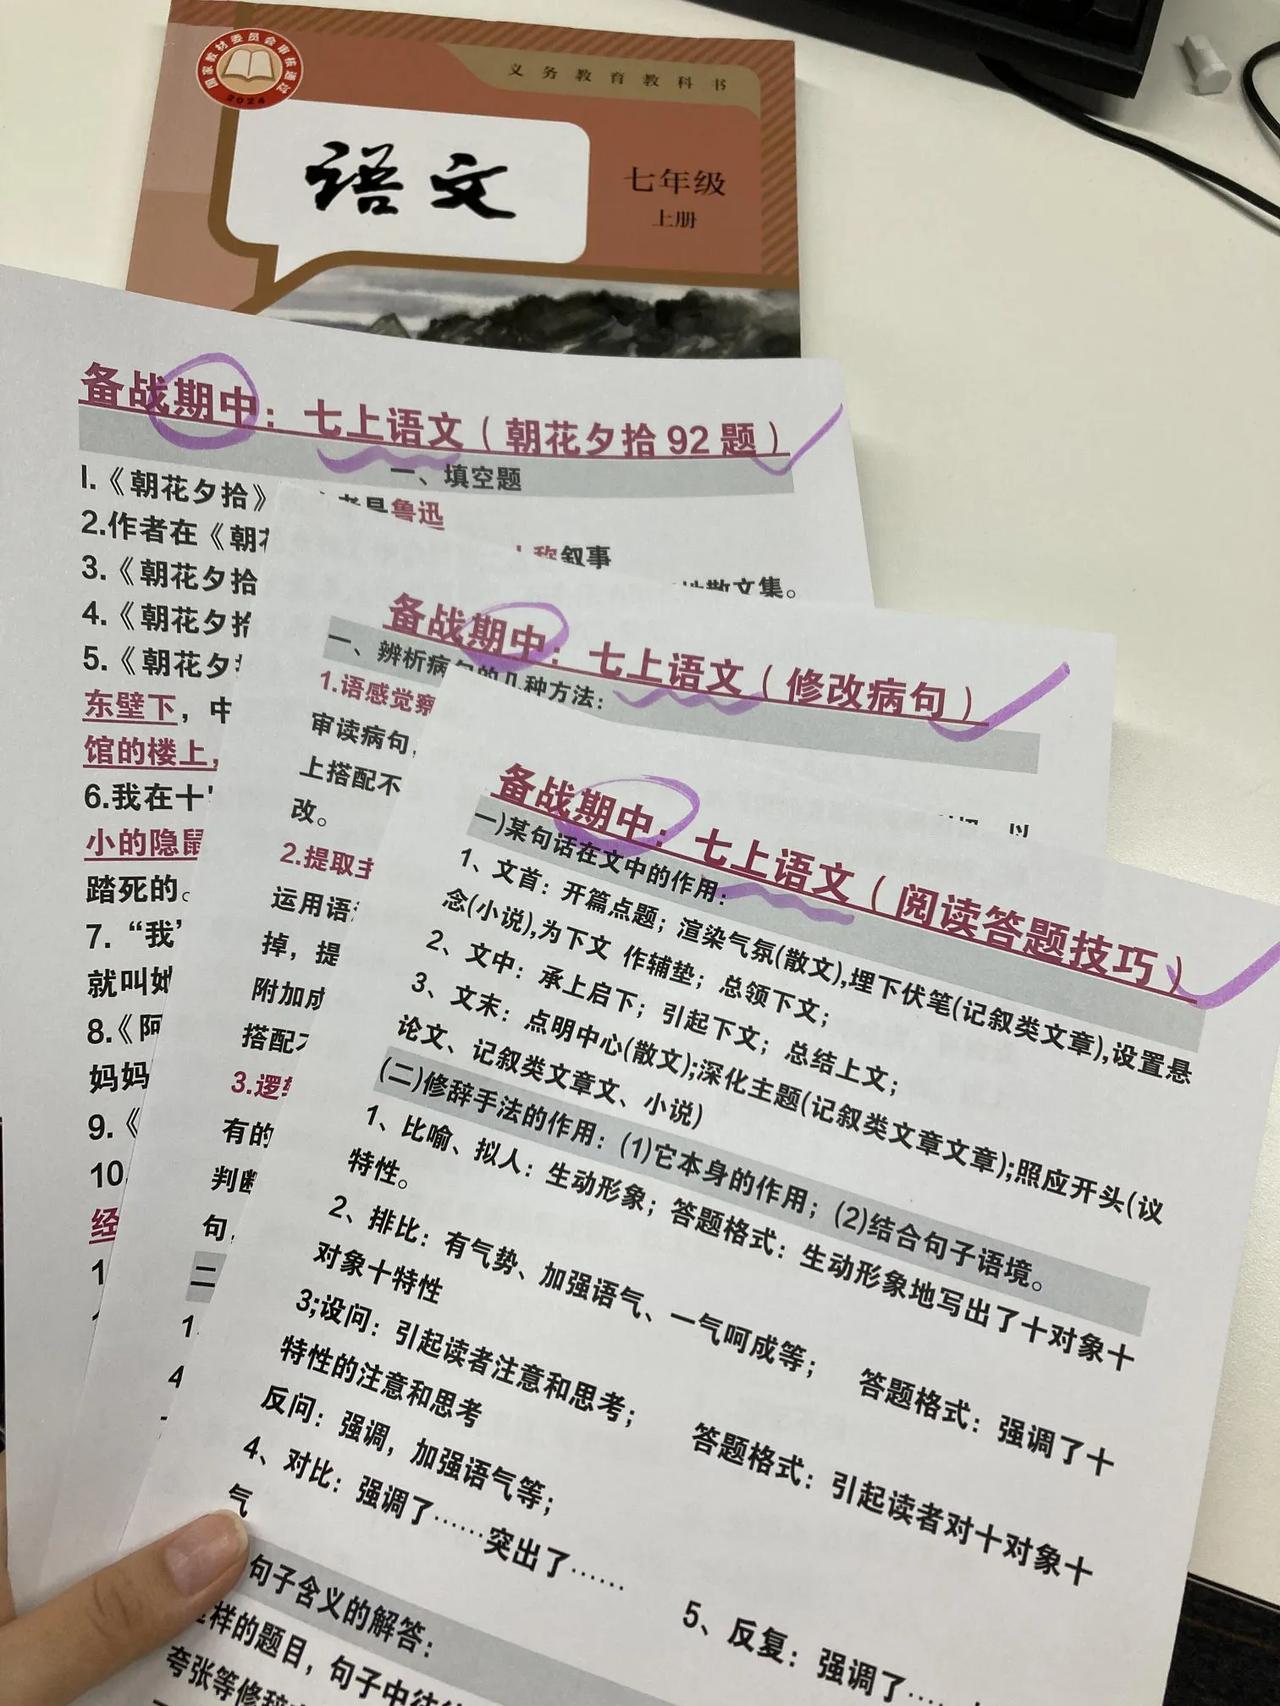 国家教材委员会审核通过
2024
义务教育教科书
语文
七年级
上册
备战期中：七上语文（朝花夕拾92题）
一、填空题
1.《朝花夕拾》 鲁迅
2.作者在《朝 人称叙事
3.《朝花夕拾 散文集。
4.《朝花夕
5.《朝花夕
东壁下，中
馆的楼上，
6.我在十
小的隐鼠
踏死的。
7.“我”
就叫她
8.《阿
妈妈
9.《
10.
经
1
备战期中：七上语文（修改病句）
一、辨析病句的几种方法：
1.语感觉察
审读病句，
上搭配不
改。
2.提取主
运用语
掉，提
附加成
搭配
3.逻辑
有的
判断
句，
二
1
4
备战期中：七上语文（阅读答题技巧）
一)某句话在文中的作用：
1、文首：开篇点题；渲染气氛(散文),埋下伏笔(记叙类文章),设置悬
念(小说),为下文 作辅垫；总领下文；
2、文中：承上启下；引起下文；总结上文；
3、文末：点明中心(散文);深化主题(记叙类文章文章);照应开头(议
论文、记叙类文章文、小说)
(二)修辞手法的作用：(1)它本身的作用；(2)结合句子语境。
1、比喻、拟人：生动形象；答题格式：生动形象地写出了十对象十
特性。
2、排比：有气势、加强语气、一气呵成等； 答题格式：强调了十
对象十特性
3;设问：引起读者注意和思考； 答题格式：引起读者对十对象十
特性的注意和思考
反问：强调，加强语气等；
4、对比：强调了……突出了…… 5、反复：强调了……
气
句子含义的解答：
样的题目，句子中往
夸张等修辞